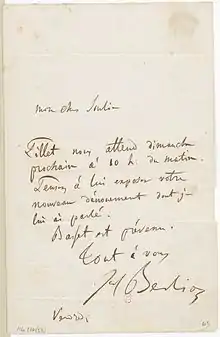 mon cher Soulié
Pillet nous attend dimanche
prochain à 10 h. du matin.
Pensez à lui exposer votre
nouveau dénouement dont je
lui ai parlé.
est prévenu.
Tout à vous
H Berlioz
Vendredi